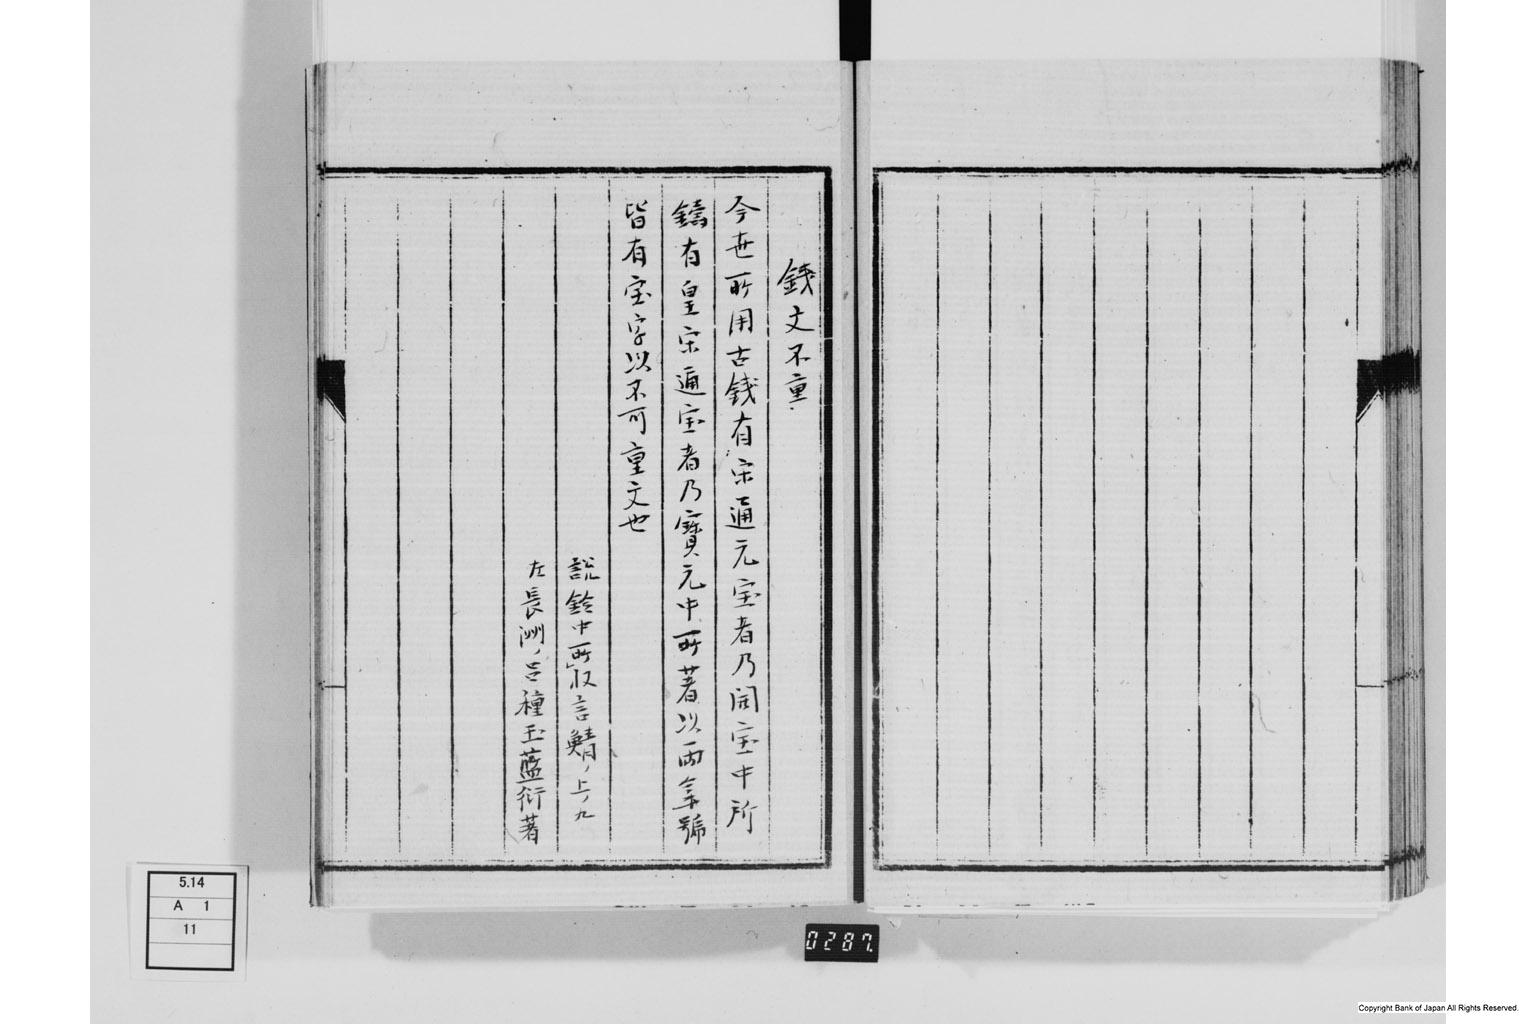 錢文不重
今世所用古錢有宋通元宝者乃開宝中所
鑄有皇宋通宝者乃寳元中所著以両年號
皆有宝字以不可重文也
說鈴中所収言鯖ノ上ノ九
左長洲ノ呂種玉藍衍著
5.14
A 1
11
0287.
Copyright Bank of Japan All Rights Reserved.